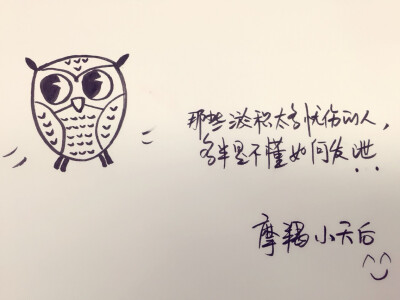 那些淤积太多忧伤的人，
多半是不懂如何发泄！！
摩羯小天后